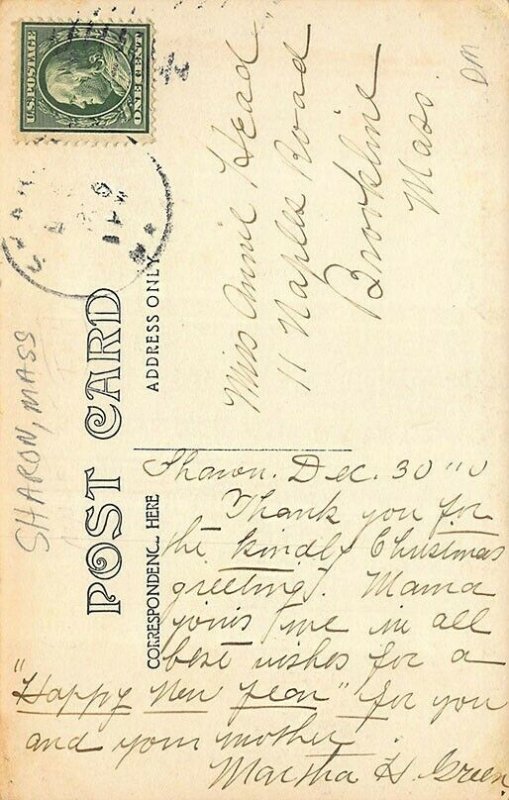 U.S. POSTAGE
ONE CENT
SHARON, MASS
POST CARD
ADDRESS ONLY
CORRESPONDENCE HERE
DM
Miss Annie Head
11 Naples Road
Brookline
Mass.
Sharon. Dec. 30 "10
Thank you for
the kindly Christmas
greeting. Mama
joins me in all
best wishes for a
"Happy New Year" for you
and your mother.
Martha H. Green